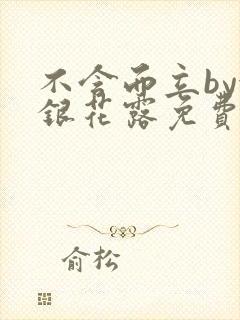 不舍而立by
銀花露免費
俞松